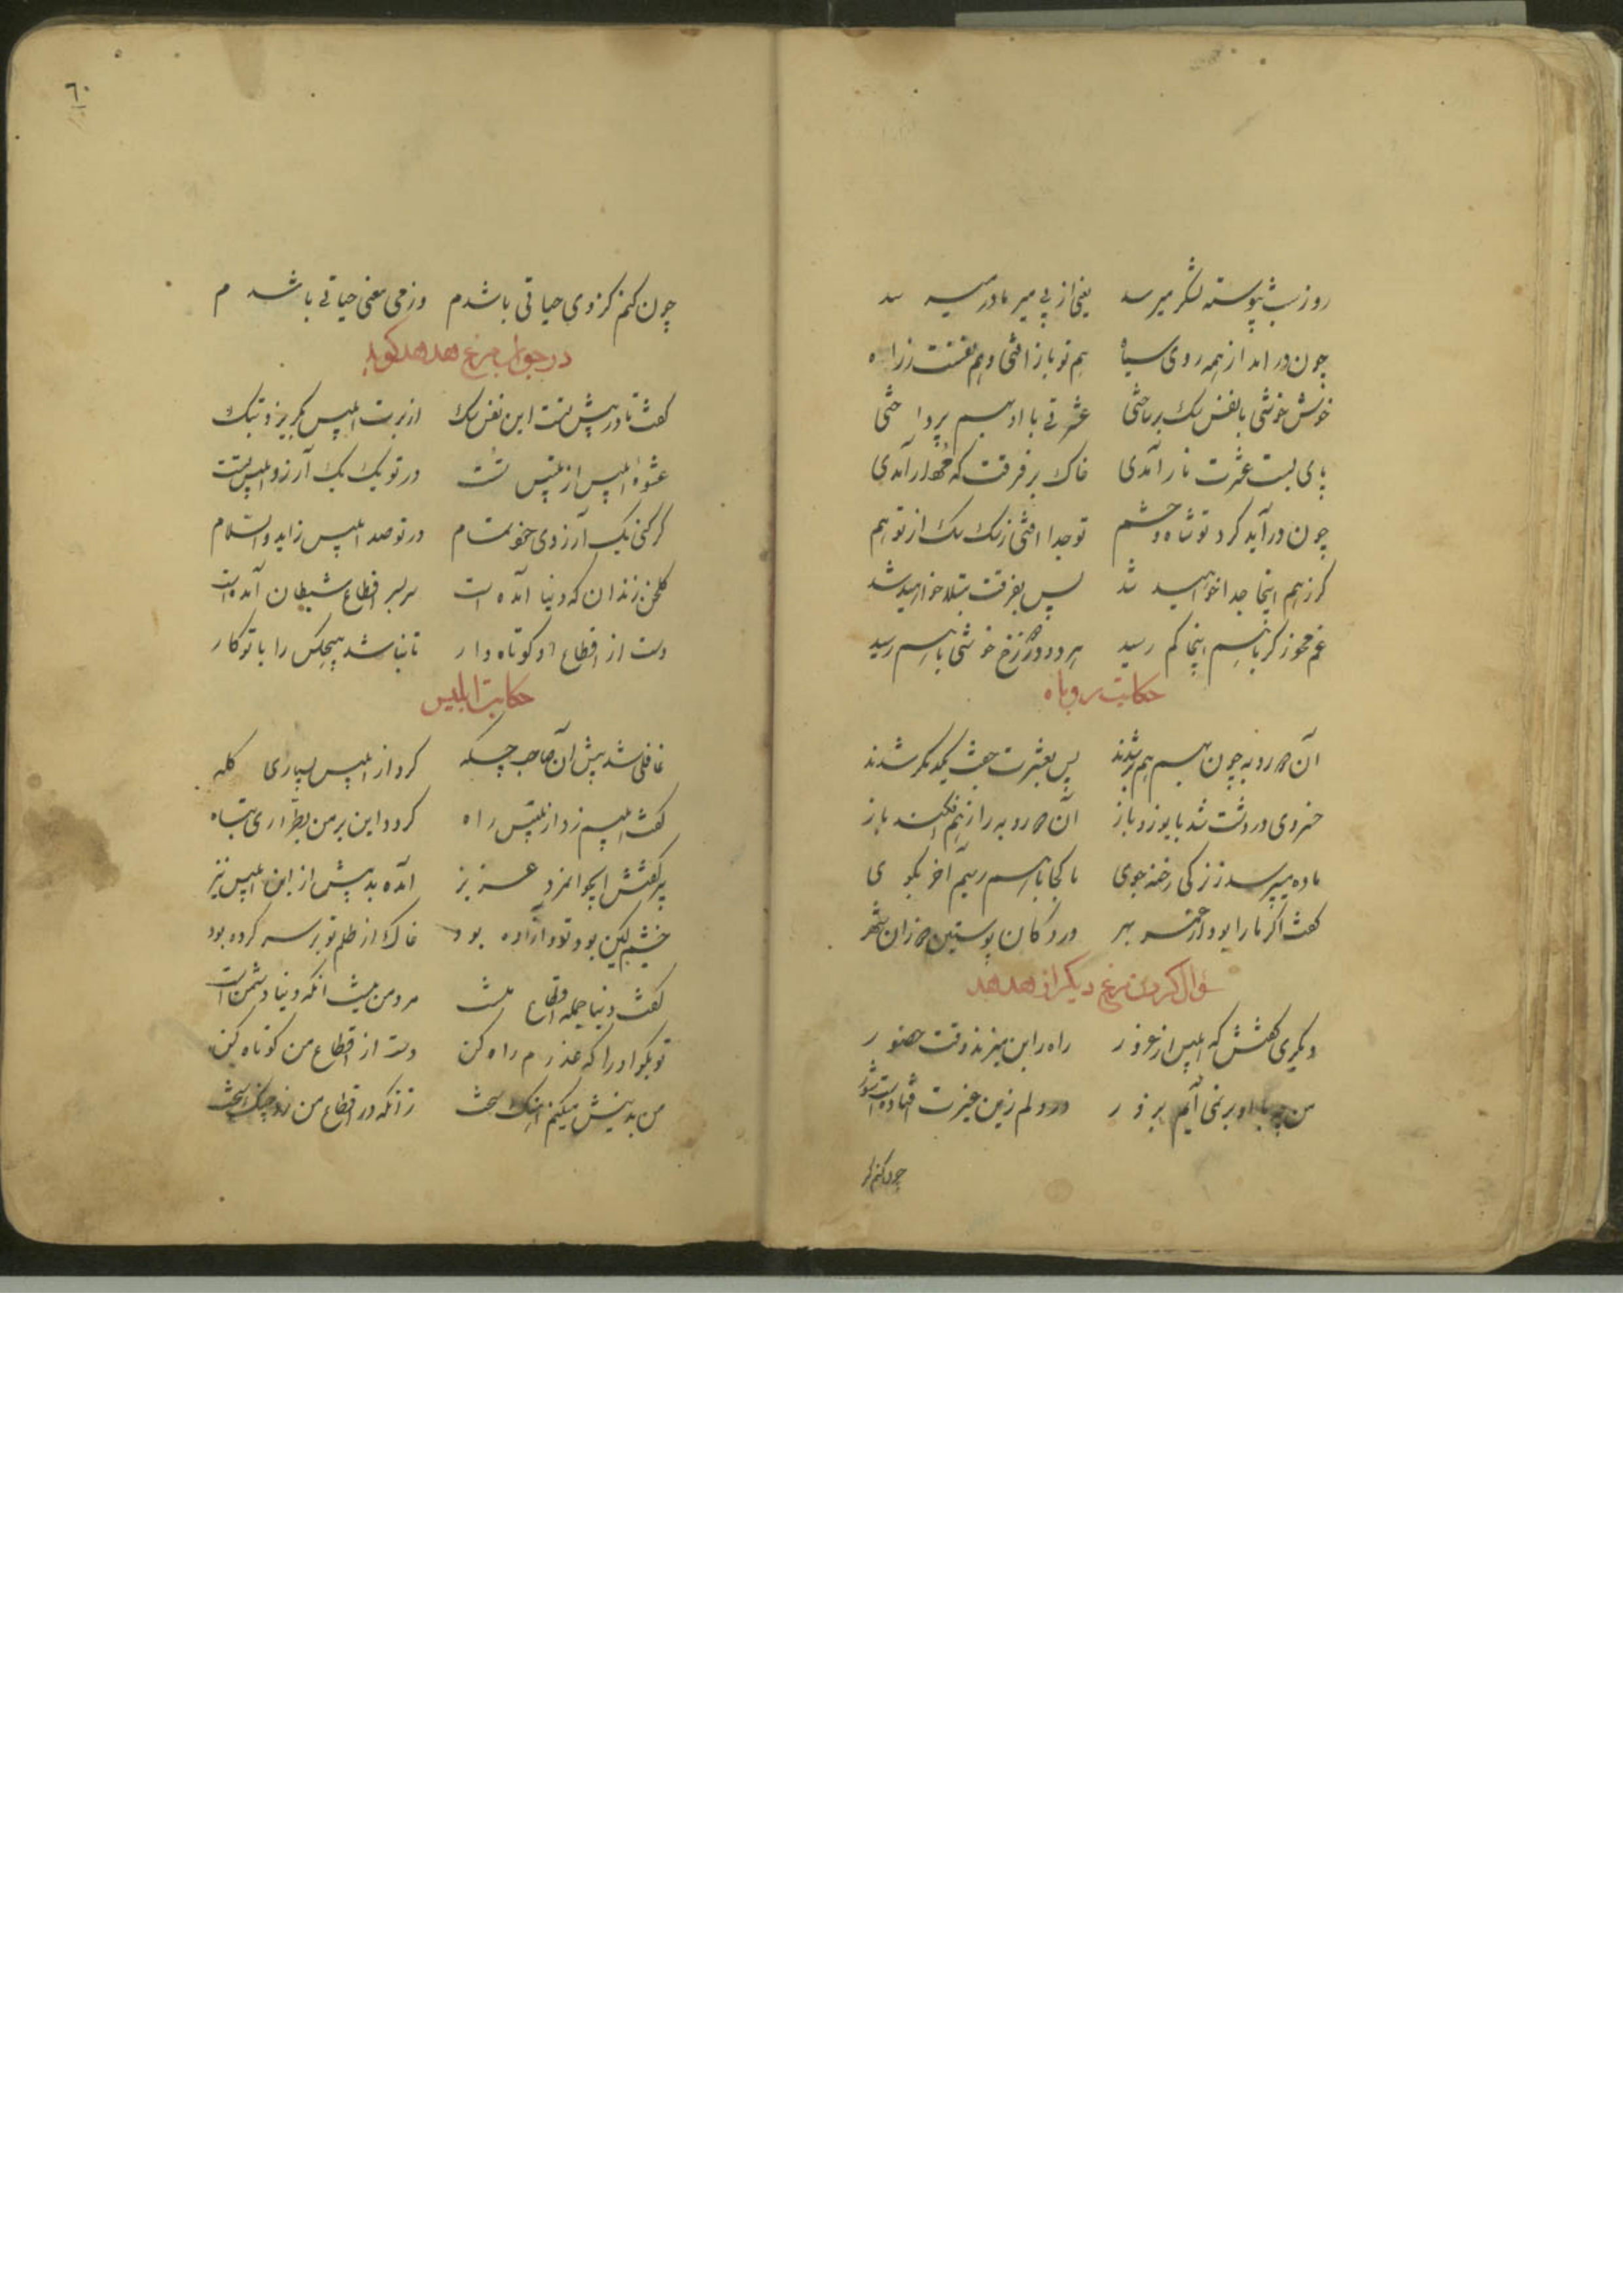 روز شب پیوسته لشکر میرسد یعنی از پی میر ما در میرسد
چون در امد از همه روی سپاه هم تو باز افتی و هم نفست ز راه
خوش خوشی با نفس سک بر ساختی عشرتی با او بهم پرداختی
پای بست عشرت نار آمدی خاک بر فرقت که
چون در آید کرد تو شاه و حشم تو جدا افتی ز سک سک از تو هم
کر ز هم اینجا جدا خواهید شد پس بفرقت مبتلا خواهید شد
غم مخور کر با هم اینجا کم رسید هر دو در دوزخ خوشی با هم رسید
حکایت روباه
آن دو روبه چون بهم هم بر شدند پس بعشرت جفت یکدیکر شدند
خسروی در دشت شد با یوز و باز آن دو روبه را ز هم افکند باز
ماده میپرسد ز نر کی رخنه جوی ما کجا با هم رسیم آخر بکوی
کفت اکر ما را بود از عمر بهر در دکان پوستین دوزان شهر
سؤال کردن مرغ دیکر از هدهد
دیکری کفتش که ابلیس از غرور راه را بر من میزند وقت حضور
من چو با او بر نمی آیم بزور در دلم زین غیرت افتادست شور
چون کنم کز
٦٠
چون کنم کز وی حیاتی باشدم وز می معنی حیاتی باشدم
در جواب مرغ هدهد کوید
کفت تا در پیش تست این نفس سک از برت ابلیس بکریزد بتک
عشوهٔ ابلیس از تلبیس تست در تو یک یک آرزو ابلیس تست
کر کنی یک آرزوی خود تمام در تو صد ابلیس زاید والسلام
کلخن زندان که دنیا آمده است سر بسر اقطاع شیطان آمده است
دست از اقطاع او کوتاه دار تا نباشد هیچکس را با تو کار
حکایت ابلیس
غافلی شد پیش آن صاحب چله کرد از ابلیس بسیاری کله
کفت ابلیسم زد از تلبیس راه کرد دین بر من بطراری تباه
پیر کفتش ایجوانمرد عزیز آمده بد پیش از این ابلیس نیز
خشمکین بود تو و آزاده بود خاک از ظلم تو بر سر کرده بود
کفت دنیا جمله اقطاع منست مرد من نیست انکه دنیا دشمن است
تو بکو او را که عزم راه کن دست از اقطاع من کوتاه کن
من بدینش میکنم آهنک سخت زانکه در اقطاع من زد چنک سخت